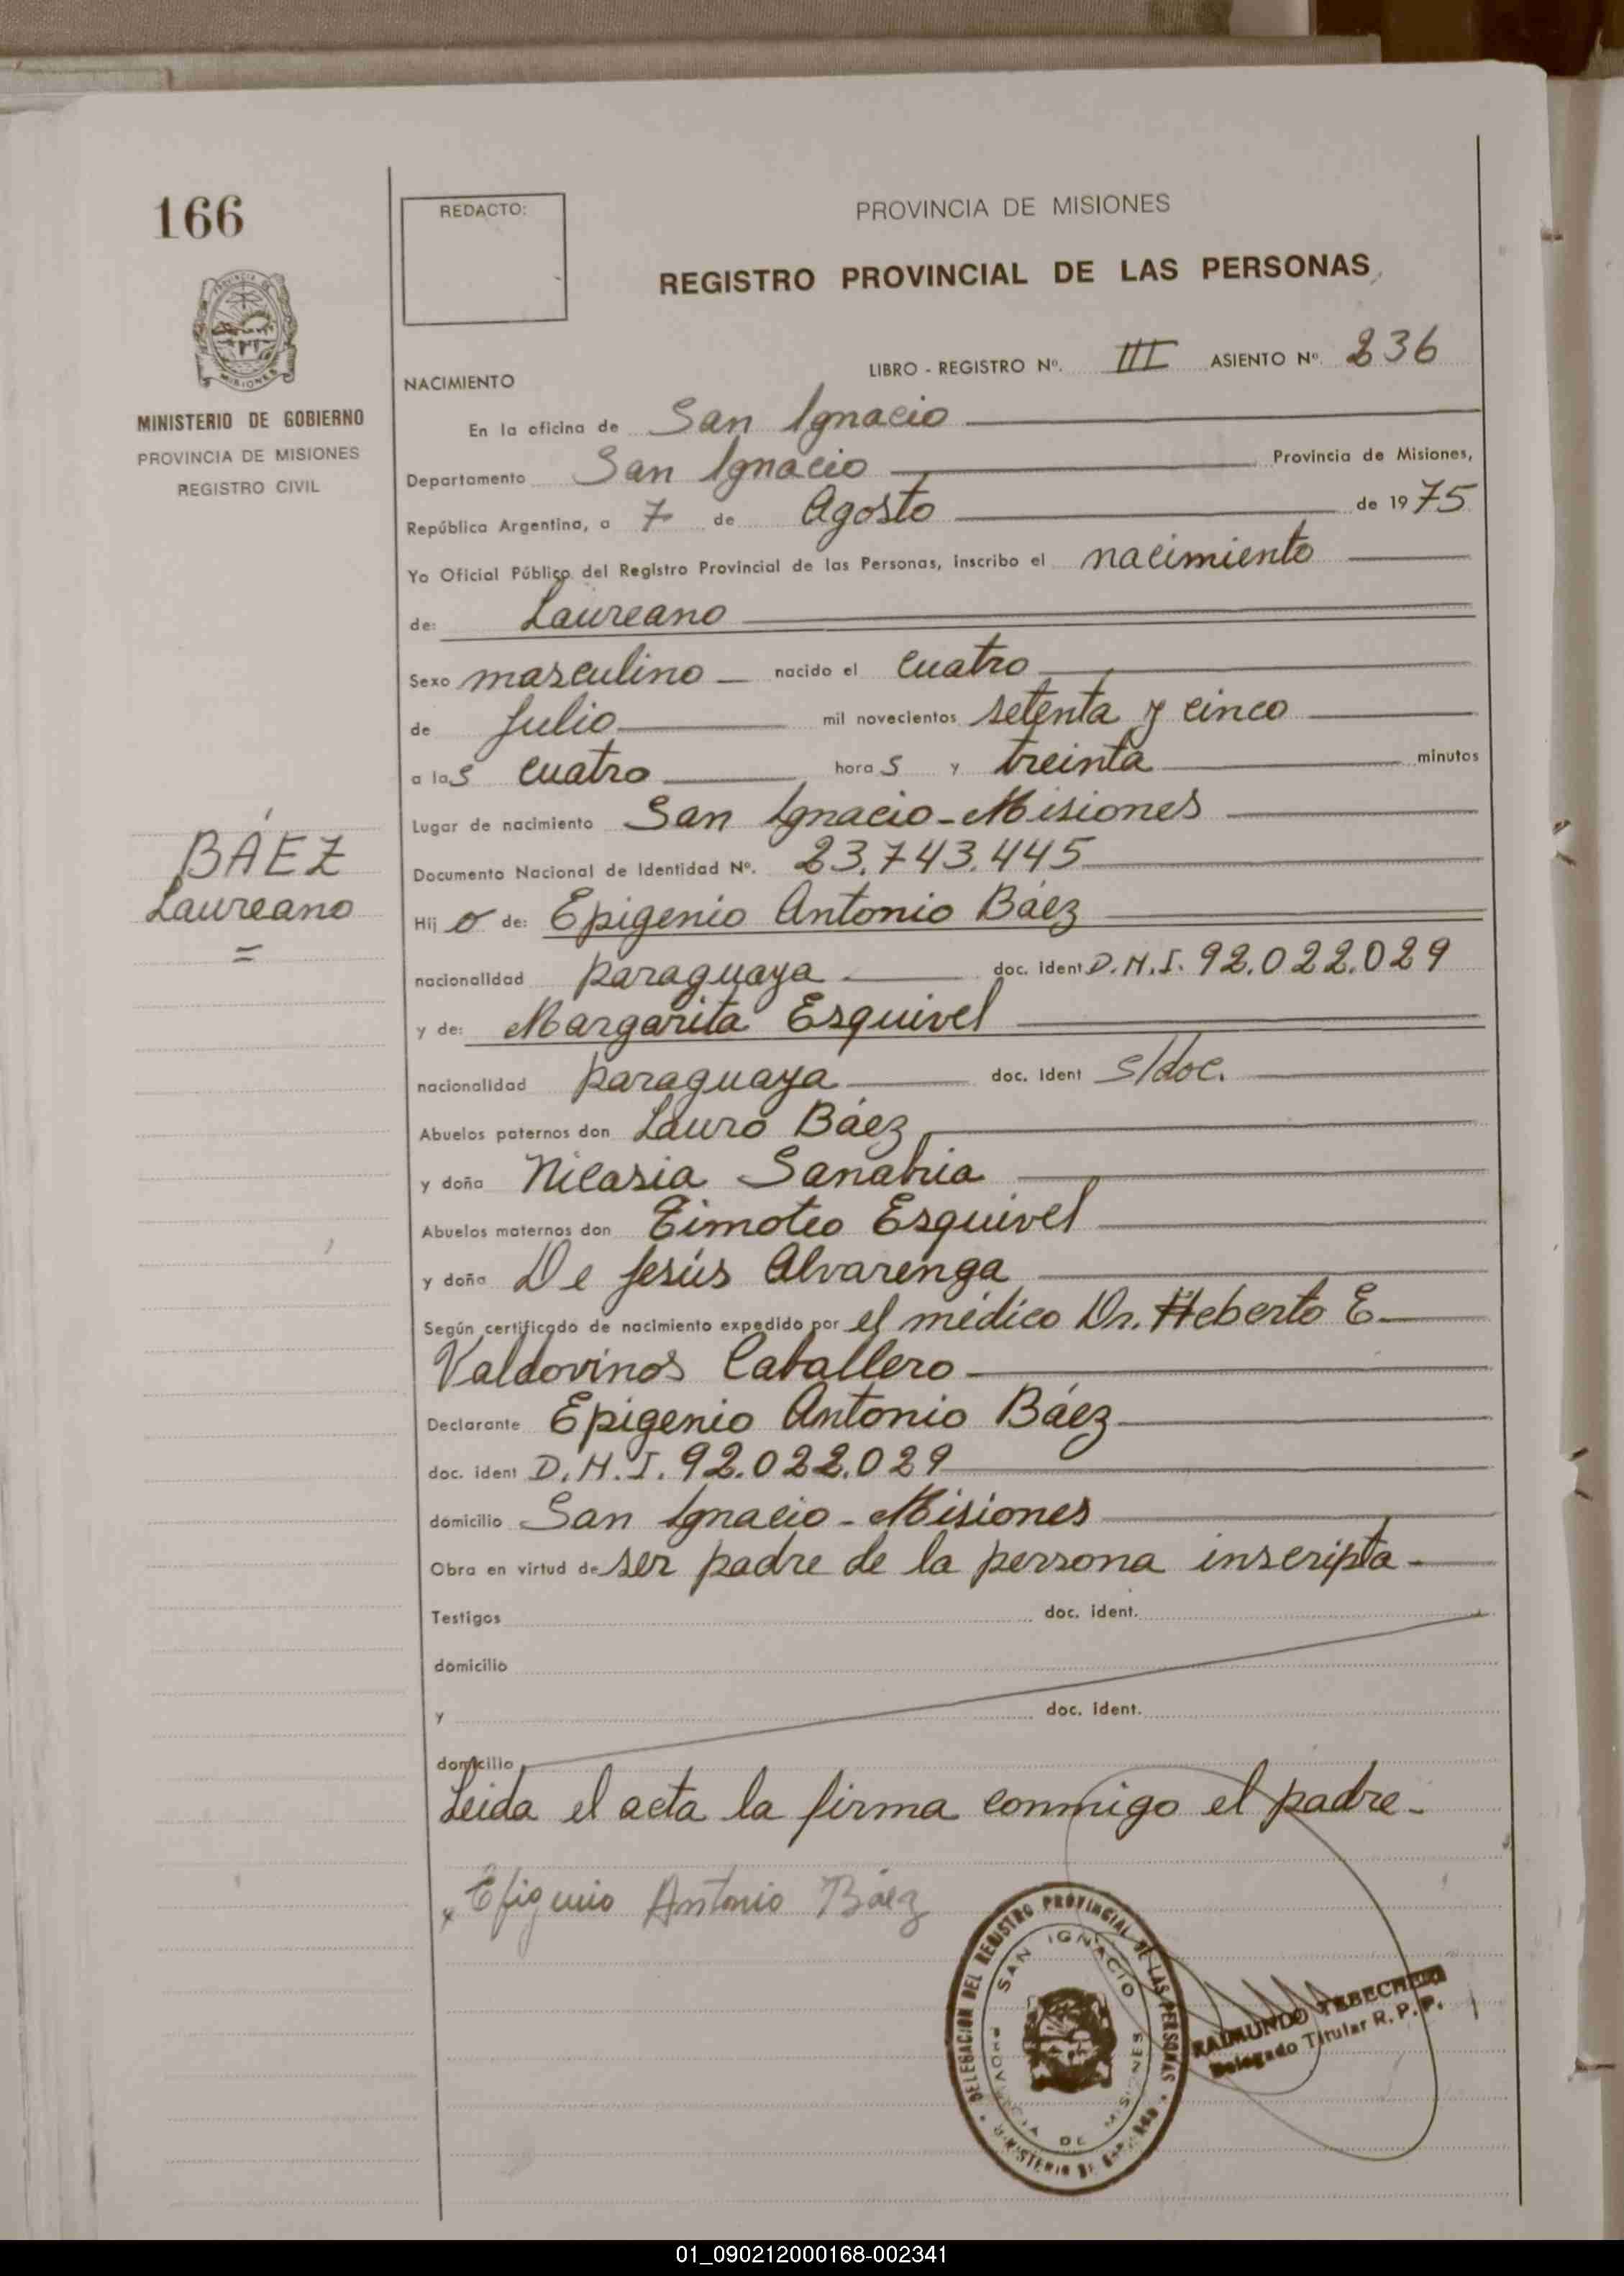 166
REDACTO:
PROVINCIA DE MISIONES
REGISTRO PROVINCIAL DE LAS PERSONAS
MISIONES
MINISTERIO DE GOBIERNO
PROVINCIA DE MISIONES
REGISTRO CIVIL
LIBRO - REGISTRO Nº. III ASIENTO Nº. 236
NACIMIENTO
En la oficina de San Ignacio
Departamento San Ignacio Provincia de Misiones,
República Argentina, a 7 de Agosto de 1975
Yo Oficial Público del Registro Provincial de las Personas, inscribo el nacimiento
de: Laureano
Sexo masculino nacido el cuatro
de Julio mil novecientos setenta y cinco
a las cuatro horas y treinta minutos
Lugar de nacimiento San Ignacio - Misiones
BÁEZ
Laureano
=
Documento Nacional de Identidad Nº. 23.743.445
Hijo de: Epigenio Antonio Báez
nacionalidad paraguaya doc. ident D.N.I. 92.022.029
y de: Margarita Esquivel
nacionalidad paraguaya doc. ident s/doc.
Abuelos paternos don Lauro Báez
y doña Nicasia Sanabria
Abuelos maternos don Timoteo Esquivel
y doña De Jesús Alvarenga
Según certificado de nacimiento expedido por el médico Dr. Heberto E.
Valdovinos Caballero
Declarante Epigenio Antonio Báez
doc. ident D.N.I. 92.022.029
domicilio San Ignacio - Misiones
Obra en virtud de ser padre de la persona inscripta.
Testigos doc. ident.
domicilio
y doc. ident.
domicilio
Leida el acta la firma conmigo el padre.
Efigenio Antonio Báez
DELEGACION DEL REGISTRO PROVINCIAL DE LAS PERSONAS
SAN IGNACIO
PROVINCIA DE MISIONES
MINISTERIO DE GOBIERNO
RAIMUNDO
Delegado Titular R. P. P.
01_090212000168-002341